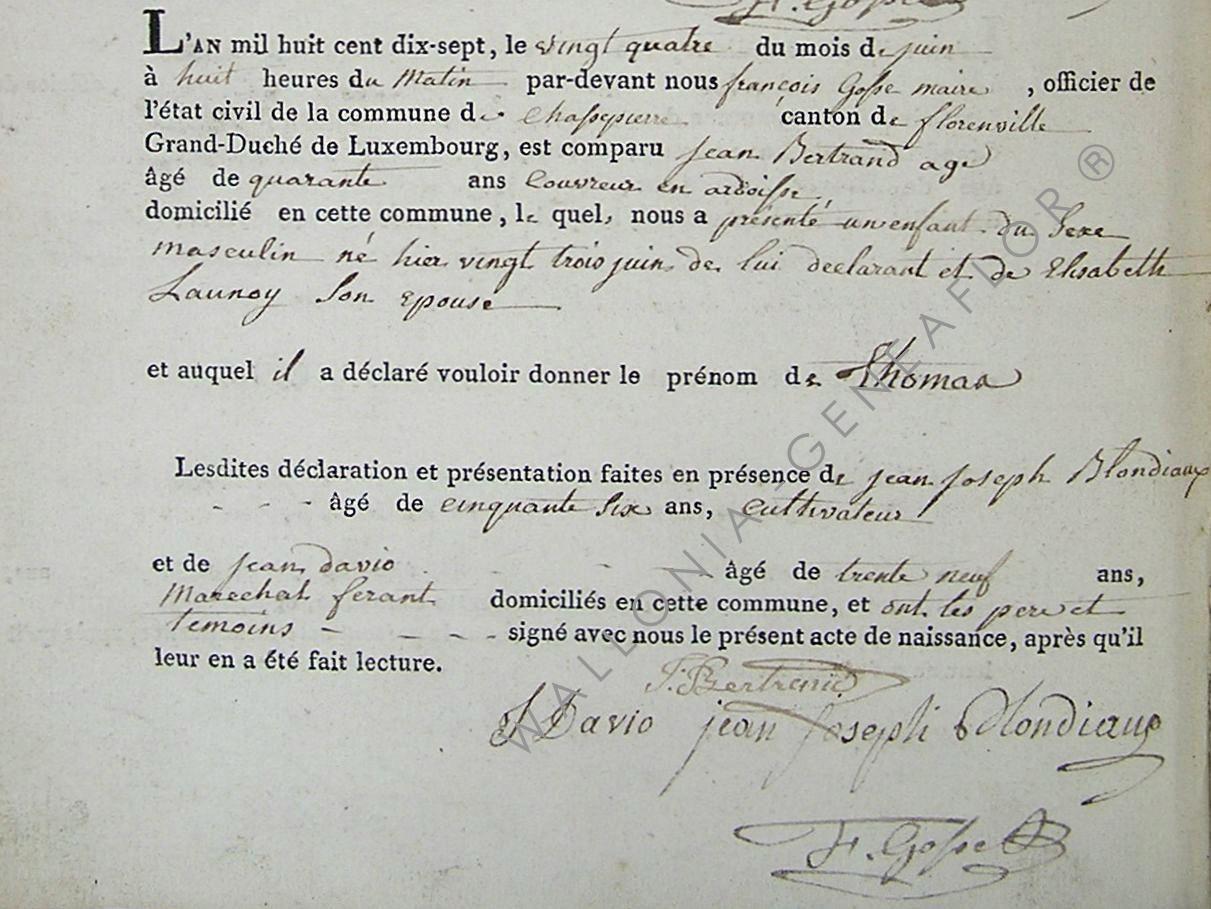 F. Gosse
L'AN mil huit cent dix-sept, le vingt quatre du mois de juin
à huit heures du Matin par-devant nous françois Gosse maire, officier de
l'état civil de la commune de Chassepierre canton de florenville
Grand-Duché de Luxembourg, est comparu jean Bertrand age
âgé de quarante ans Couvreur en ardoisse
domicilié en cette commune, le quel, nous a présenté un enfant du Sexe
masculin né hier vingt trois juin de lui declarant et de Elisabeth
Launoy Son Epouse
et auquel il a déclaré vouloir donner le prénom de Thomas
Lesdites déclaration et présentation faites en présence de jean Joseph Blondiaux
- - âgé de cinquante Six ans, cultivateur
et de jean davio - - âgé de trente neuf ans,
Marechal ferant domiciliés en cette commune, et ont les pere et
temoins - - - - signé avec nous le présent acte de naissance, après qu'il
leur en a été fait lecture.
J. Bertrand
J Davio jean Joseph Blondiaux
F. Gosse
WALLONIA GENEAFLOR ®